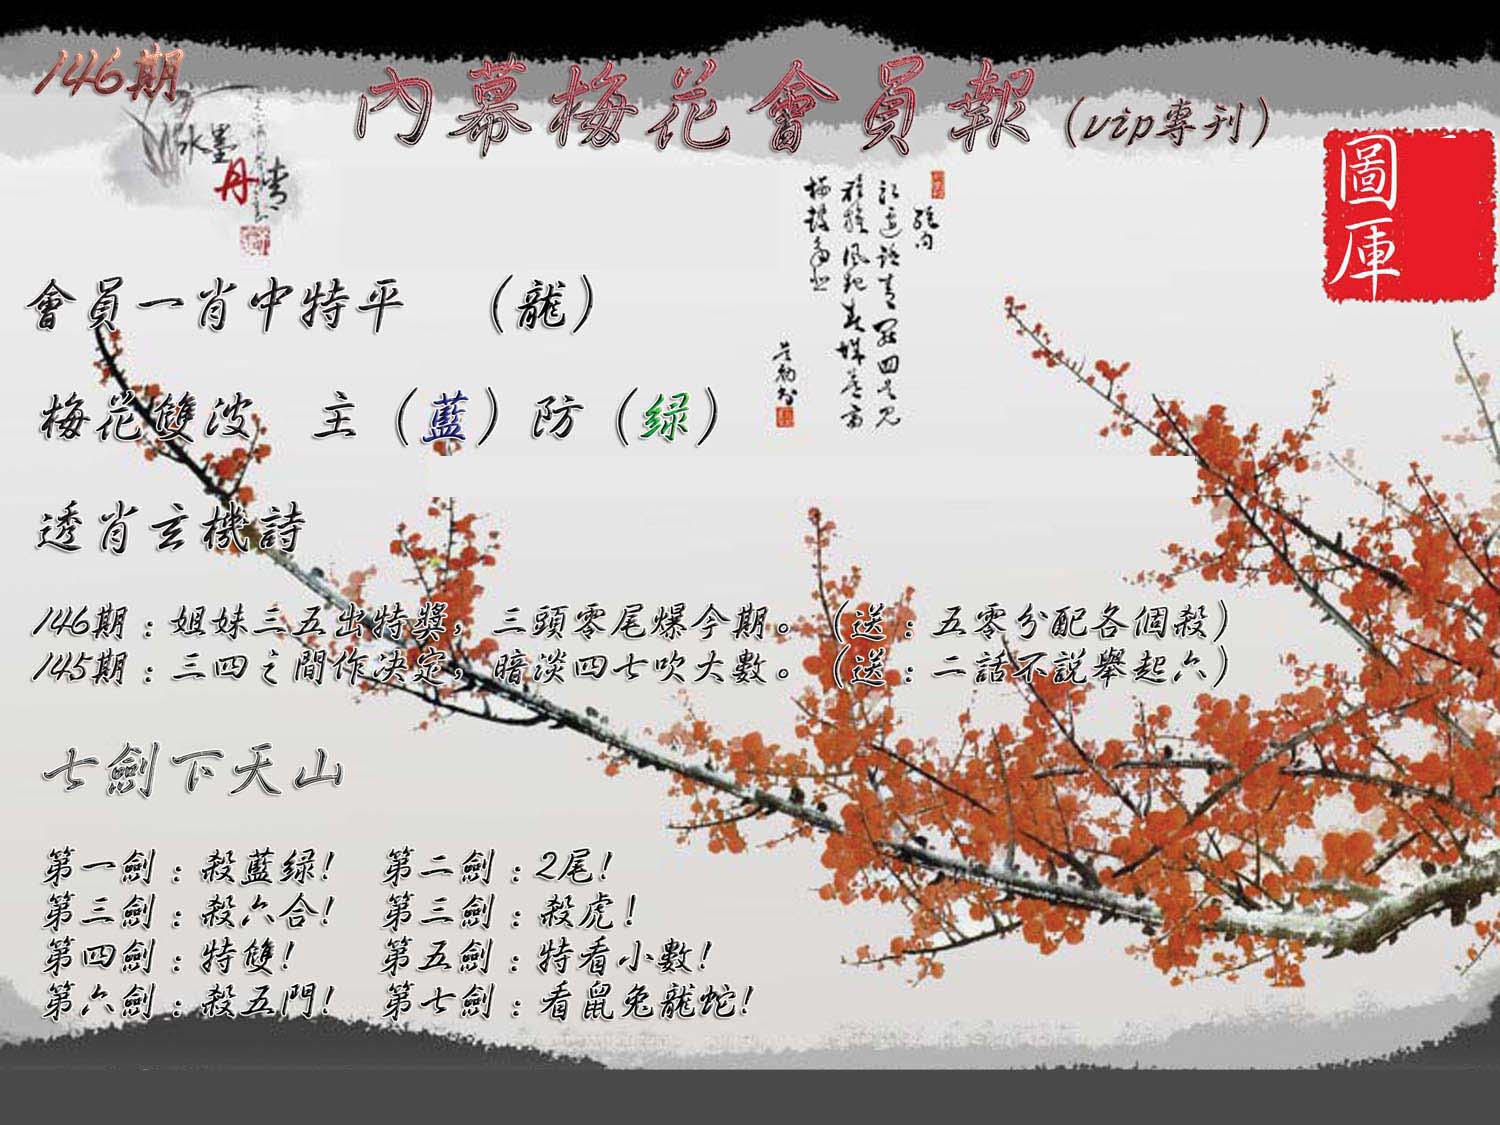 146期
內幕梅花會員報(vip專刊)
水墨
丹青
圖庫
會員一肖中特平 (龍)
梅花雙波 主(藍)防(绿)
透肖玄機詩
146期:姐妹三五出特獎,三頭零尾爆今期。(送:五零分配各個殺)
145期:三四之間作決定,暗淡四七吹大數。(送:二話不説舉起六)
七劍下天山
第一劍:殺藍绿! 第二劍:2尾!
第三劍:殺六合! 第三劍:殺虎!
第四劍:特雙! 第五劍:特看小數!
第六劍:殺五門! 第七劍:看鼠兔龍蛇!